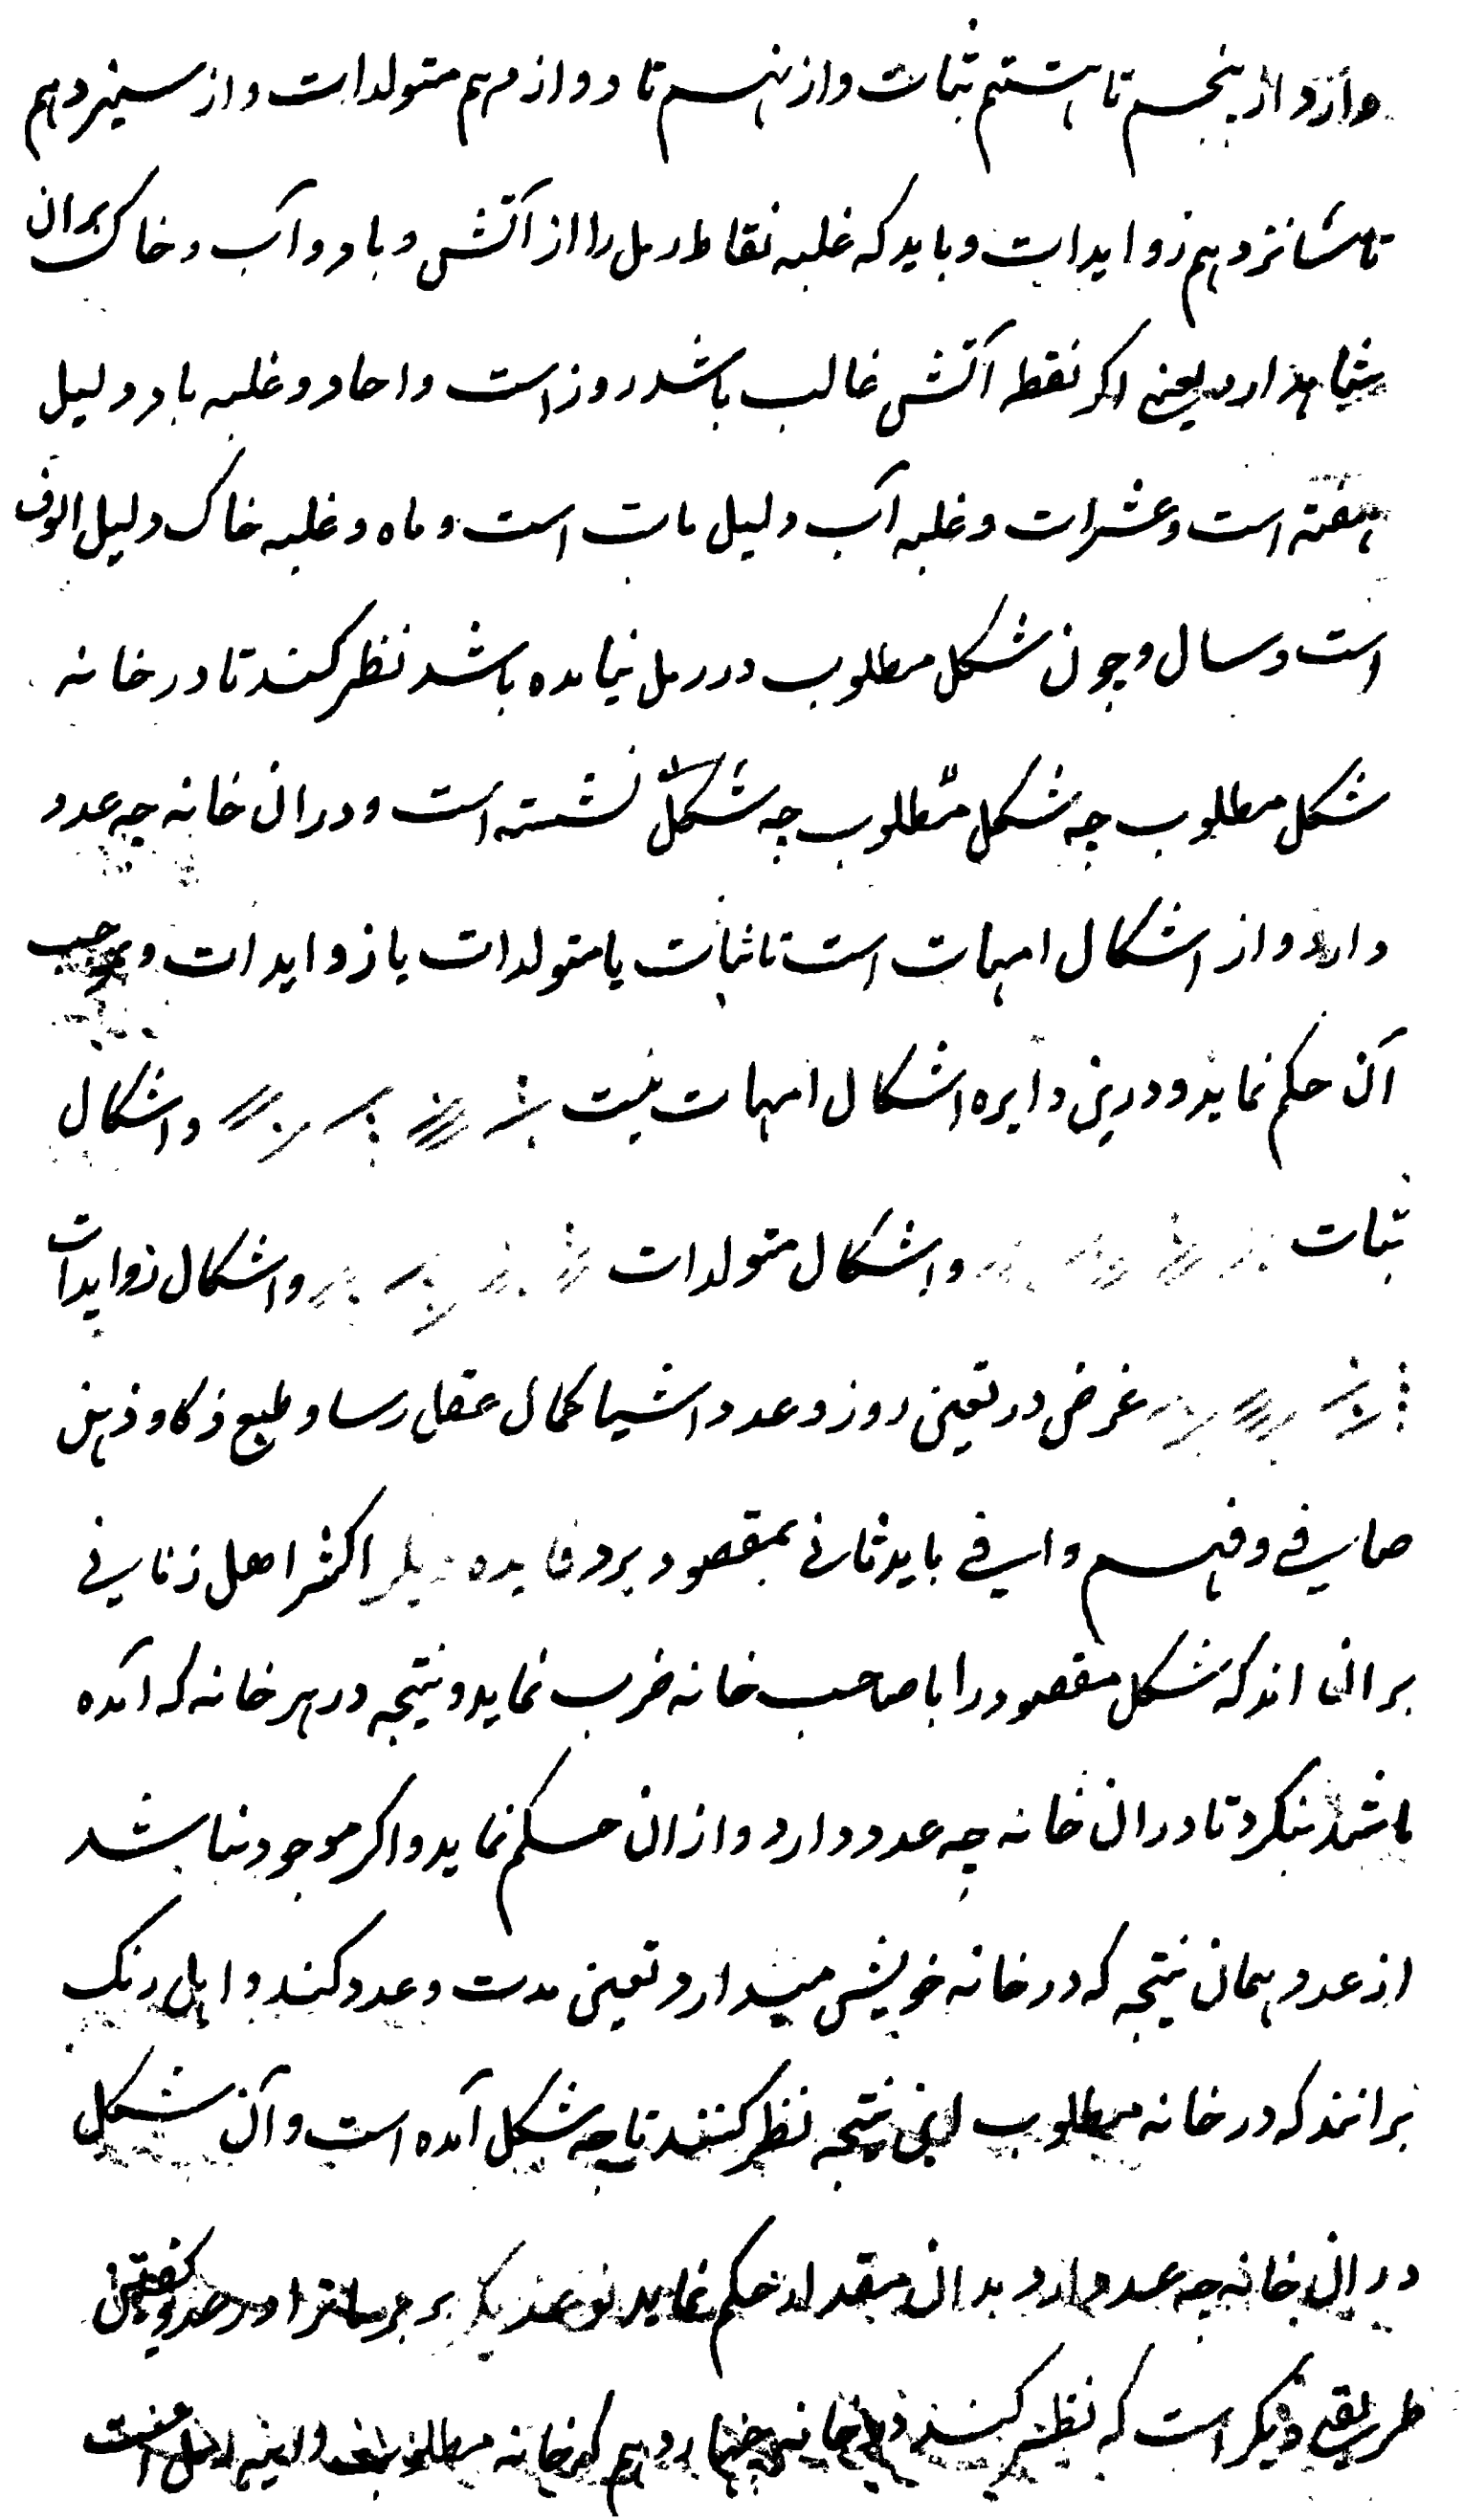 دارد و از پنجم تا هشتم بنات و از نهم تا دوازدهم متولدات و از سیزدهم
تا شانزدهم زوایدات و باید که غلبه نقاط رمل را از آتش و باد و آب و خاک بران
یعنی اکر نقط آتش غالب باشد روز است و احاد و غلبه باد دلیل
هفته است و عشرات و غلبه آب دلیل مات است و ماه و غلبه خاک دلیل الوف
است و سال و چون شکل مطلوب در رمل نیامده باشد نظر کنند تا در خانه
شکل مطلوب چه شکل مطلوب چه شکل نشسته است و دران خانه چه عدد
دارد و از اشکال امهات است تا بنات یا متولدات یا زوایدات و بموجب
آن حکم نماید و درین دایره اشکال امهات و اشکال
بنات و اشکال متولدات و اشکال زوایدات
غرض در تعین روز و عدد اشیا کمال عقل رسا و طبع ذکا و ذهن
صافی و فهم وافی باید تا پی بمقصود برد فایده اکثر اهل
بر انند که شکل مقصود را با صاحب خانه ضرب نماید و نتیجه در هر خانه که آمده
باشد بنکرد تا دران خانه چه عدد دارد و ازان حکم نماید و اکر موجود نباشد
از عدد همان نتیجه که در خانه خویش میدارد تعین مدت و عدد کند و اهل
برانند که در خانه مطلوب این نتیجه نظر کنند تا چه شکل آمده است و آن شکل
دران خانه چه عدد دارد بدان مقدار حکم نماید
طریق دیکر است که نظر کنند در خانه چهاردهم که خانه مطلوب